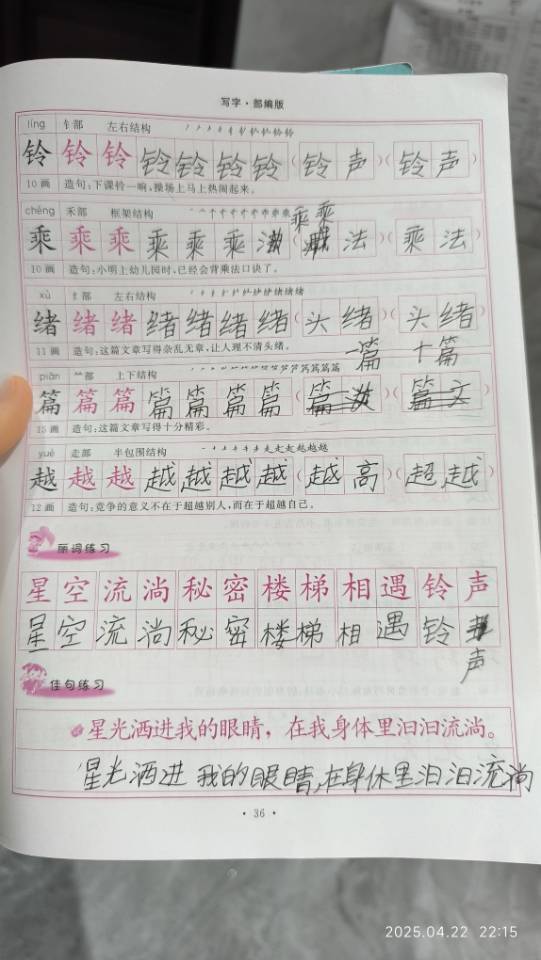 写字·部编版
líng 钅部 左右结构
铃 铃 铃 铃 铃 铃 铃 (铃 声) (铃 声)
10画 造句:下课铃一响,操场上马上热闹起来。
乘 乘
chéng 禾部 框架结构
乘 乘 乘 乘 乘 乘 ( 法) (乘 法)
10画 造句:小明上幼儿园时,已经会背乘法口诀了。
xù 纟部 左右结构
绪 绪 绪 绪 绪 绪 绪 (头 绪) (头 绪)
11画 造句:这篇文章写得杂乱无章,让人理不清头绪。
一篇 十篇
piān ⺮部 上下结构
篇 篇 篇 篇 篇 篇 篇 (篇 ) (篇 文)
15画 造句:这篇文章写得十分精彩。
yuè 走部 半包围结构
越 越 越 越 越 越 越 (越 高) (超 越)
12画 造句:竞争的意义不在于超越别人,而在于超越自己。
丽词练习
星空 流淌 秘密 楼梯 相遇 铃声
星空 流淌 秘密 楼梯 相遇 铃
声
佳句练习
星光洒进我的眼睛,在我身体里汩汩流淌。
星光洒进我的眼睛,在身休里汩汩流淌
·36·
2025.04.22 22:15